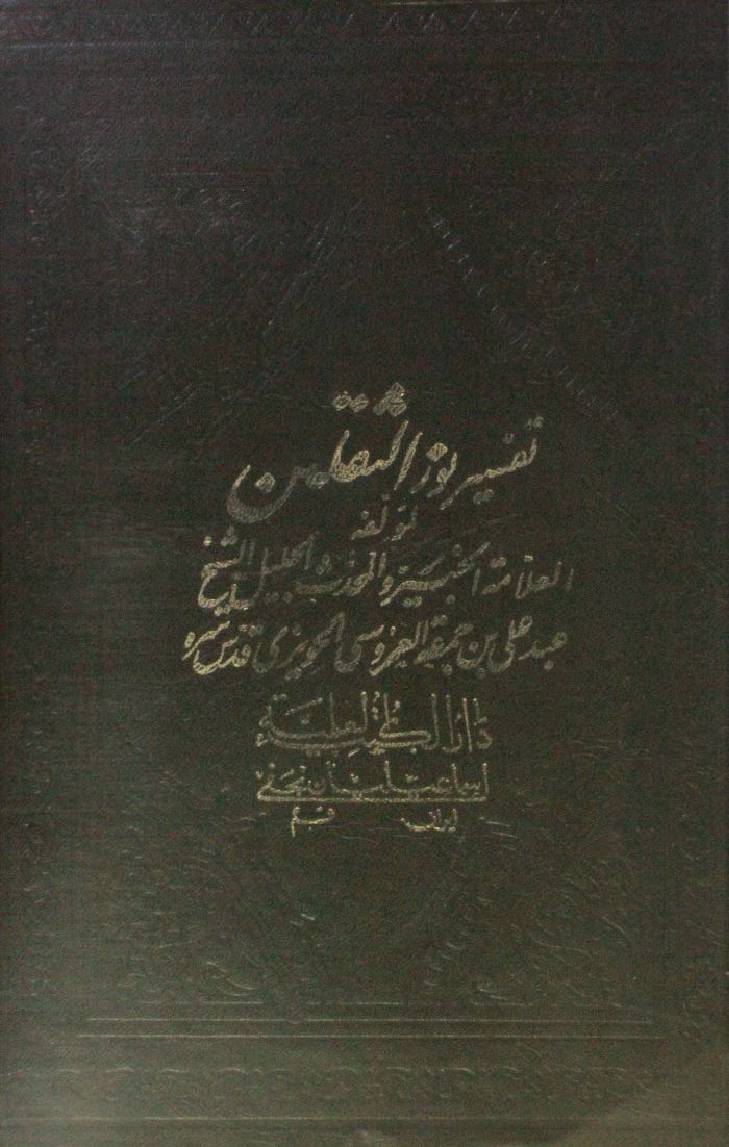 تفسير نور الثقلين
لمؤلفه
العلامة الخبير والمحدث الجليل الشيخ
عبد علي بن جمعة العروسي الحويزي قدس سره
دار الكتب العلمية
اسماعيليان نجفي
ايران قم